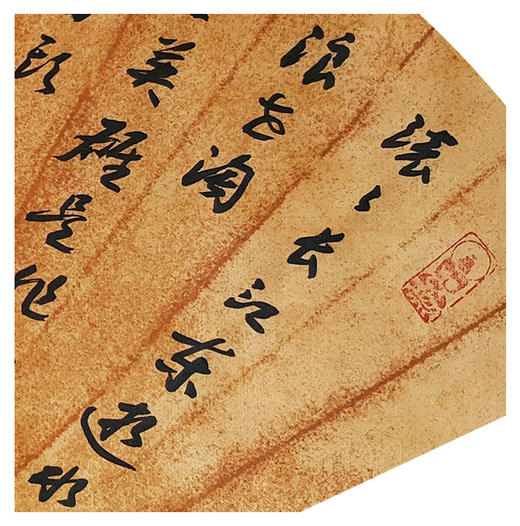 滚滚长江东逝水
浪花淘
英雄是非
头